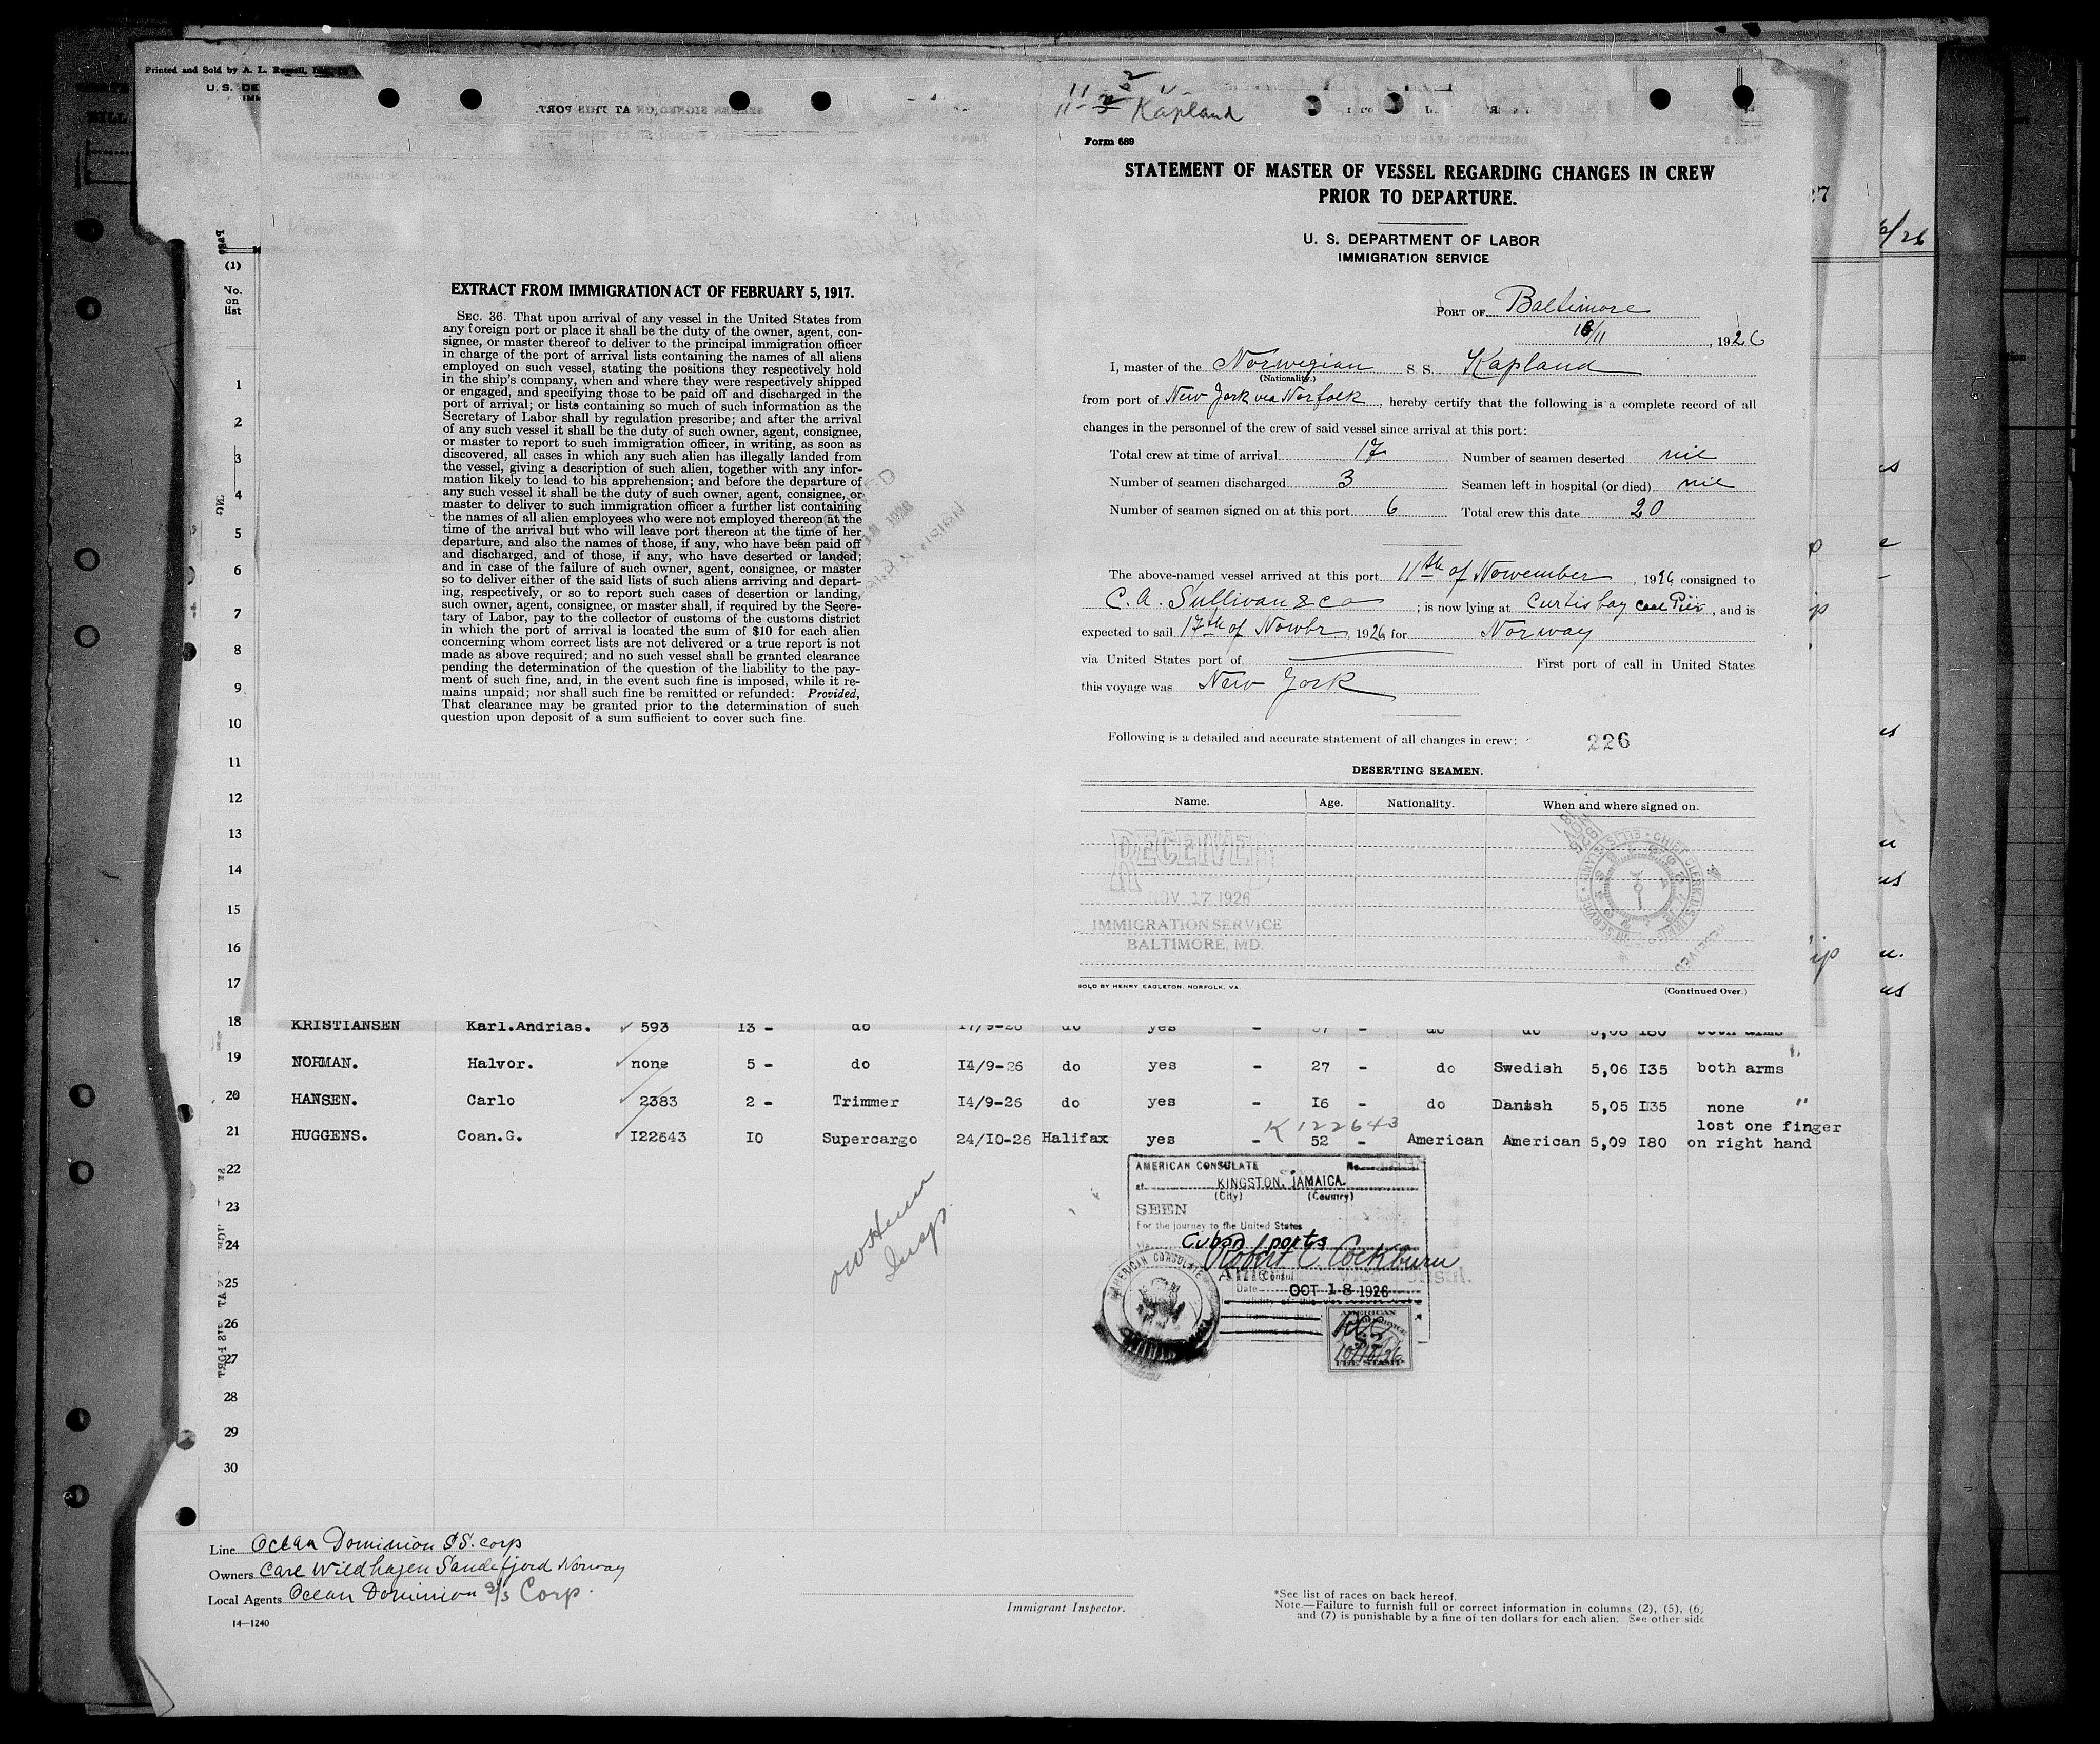 Printed and Sold by A. L. Russell,
U. S. DE
11-2 Kapland
Form 689
STATEMENT OF MASTER OF VESSEL REGARDING CHANGES IN CREW
PRIOR TO DEPARTURE.
U. S. DEPARTMENT OF LABOR
IMMIGRATION SERVICE
PORT OF Baltimore
18/11, 1926
I, master of the Norwegian S. S. Kapland
(Nationality.)
from port of New York via Norfolk, hereby certify that the following is a complete record of all
changes in the personnel of the crew of said vessel since arrival at this port:
Total crew at time of arrival 17 Number of seamen deserted nil
Number of seamen discharged 3 Seamen left in hospital (or died) nil
Number of seamen signed on at this port 6 Total crew this date 20
The above-named vessel arrived at this port 11th of Nowember, 1926 consigned to
C. A. Sullivan & Co; is now lying at Curtisbay Coal Pier, and is
expected to sail 17th of Nowbr, 1926 for Norway
via United States port of First port of call in United States
this voyage was New York
Following is a detailed and accurate statement of all changes in crew:
226
DESERTING SEAMEN.
Name. Age. Nationality. When and where signed on.
RECEIVED
NOV 17 1926
IMMIGRATION SERVICE
BALTIMORE, MD.
SOLD BY HENRY EAGLETON, NORFOLK, VA.
(Continued Over.)
EXTRACT FROM IMMIGRATION ACT OF FEBRUARY 5, 1917.
SEC. 36. That upon arrival of any vessel in the United States from
any foreign port or place it shall be the duty of the owner, agent, con-
signee, or master thereof to deliver to the principal immigration officer
in charge of the port of arrival lists containing the names of all aliens
employed on such vessel, stating the positions they respectively hold
in the ship's company, when and where they were respectively shipped
or engaged, and specifying those to be paid off and discharged in the
port of arrival; or lists containing so much of such information as the
Secretary of Labor shall by regulation prescribe; and after the arrival
of any such vessel it shall be the duty of such owner, agent, consignee,
or master to report to such immigration officer, in writing, as soon as
discovered, all cases in which any such alien has illegally landed from
the vessel, giving a description of such alien, together with any infor-
mation likely to lead to his apprehension; and before the departure of
any such vessel it shall be the duty of such owner, agent, consignee, or
master to deliver to such immigration officer a further list containing
the names of all alien employees who were not employed thereon at the
time of the arrival but who will leave port thereon at the time of her
departure, and also the names of those, if any, who have been paid off
and discharged, and of those, if any, who have deserted or landed;
and in case of the failure of such owner, agent, consignee, or master
so to deliver either of the said lists of such aliens arriving and depart-
ing, respectively, or so to report such cases of desertion or landing,
such owner, agent, consignee, or master shall, if required by the Secre-
tary of Labor, pay to the collector of customs of the customs district
in which the port of arrival is located the sum of $10 for each alien
concerning whom correct lists are not delivered or a true report is not
made as above required; and no such vessel shall be granted clearance
pending the determination of the question of the liability to the pay-
ment of such fine, and, in the event such fine is imposed, while it re-
mains unpaid; nor shall such fine be remitted or refunded: Provided,
That clearance may be granted prior to the determination of such
question upon deposit of a sum sufficient to cover such fine.
(1)
No.
on
list
1
2
3
4
5
6
7
8
9
10
11
12
13
14
15
16
17
18 KRISTIANSEN Karl.Andrias. 593 13 - do 17/9-26 do yes - 37 - do do 5,08 180 both arms
19 NORMAN. Halvor. none 5 - do 14/9-26 do yes - 27 - do Swedish 5,06 I35 both arms "
20 HANSEN. Carlo 2383 2 - Trimmer 14/9-26 do yes - I6 - do Danish 5,05 I35 none "
K 122643
21 HUGGENS. Coan.G. I22643 IO Supercargo 24/IO-26 Halifax yes - 52 - American American 5,09 I80 lost one finger on right hand
22
23
24
25
26
27
28
29
30
Insp.
AMERICAN CONSULATE No.
at KINGSTON, JAMAICA.
(City) (Country)
SEEN
For the journey to the United States
via Cuban ports
Robert C. Cockburn
American Vice Consul.
Date OCT 18 1926
AMERICAN CONSULATE
AMERICAN
$2
10/18/26
FEE STAMP
Line Ocean Dominion SS. corp
Owners Carl Wildhagen Sandefjord Norway
Local Agents Ocean Dominion S/S Corp.
14—1240
Immigrant Inspector.
*See list of races on back hereof.
Note.—Failure to furnish full or correct information in columns (2), (5), (6,
and (7) is punishable by a fine of ten dollars for each alien. See other side